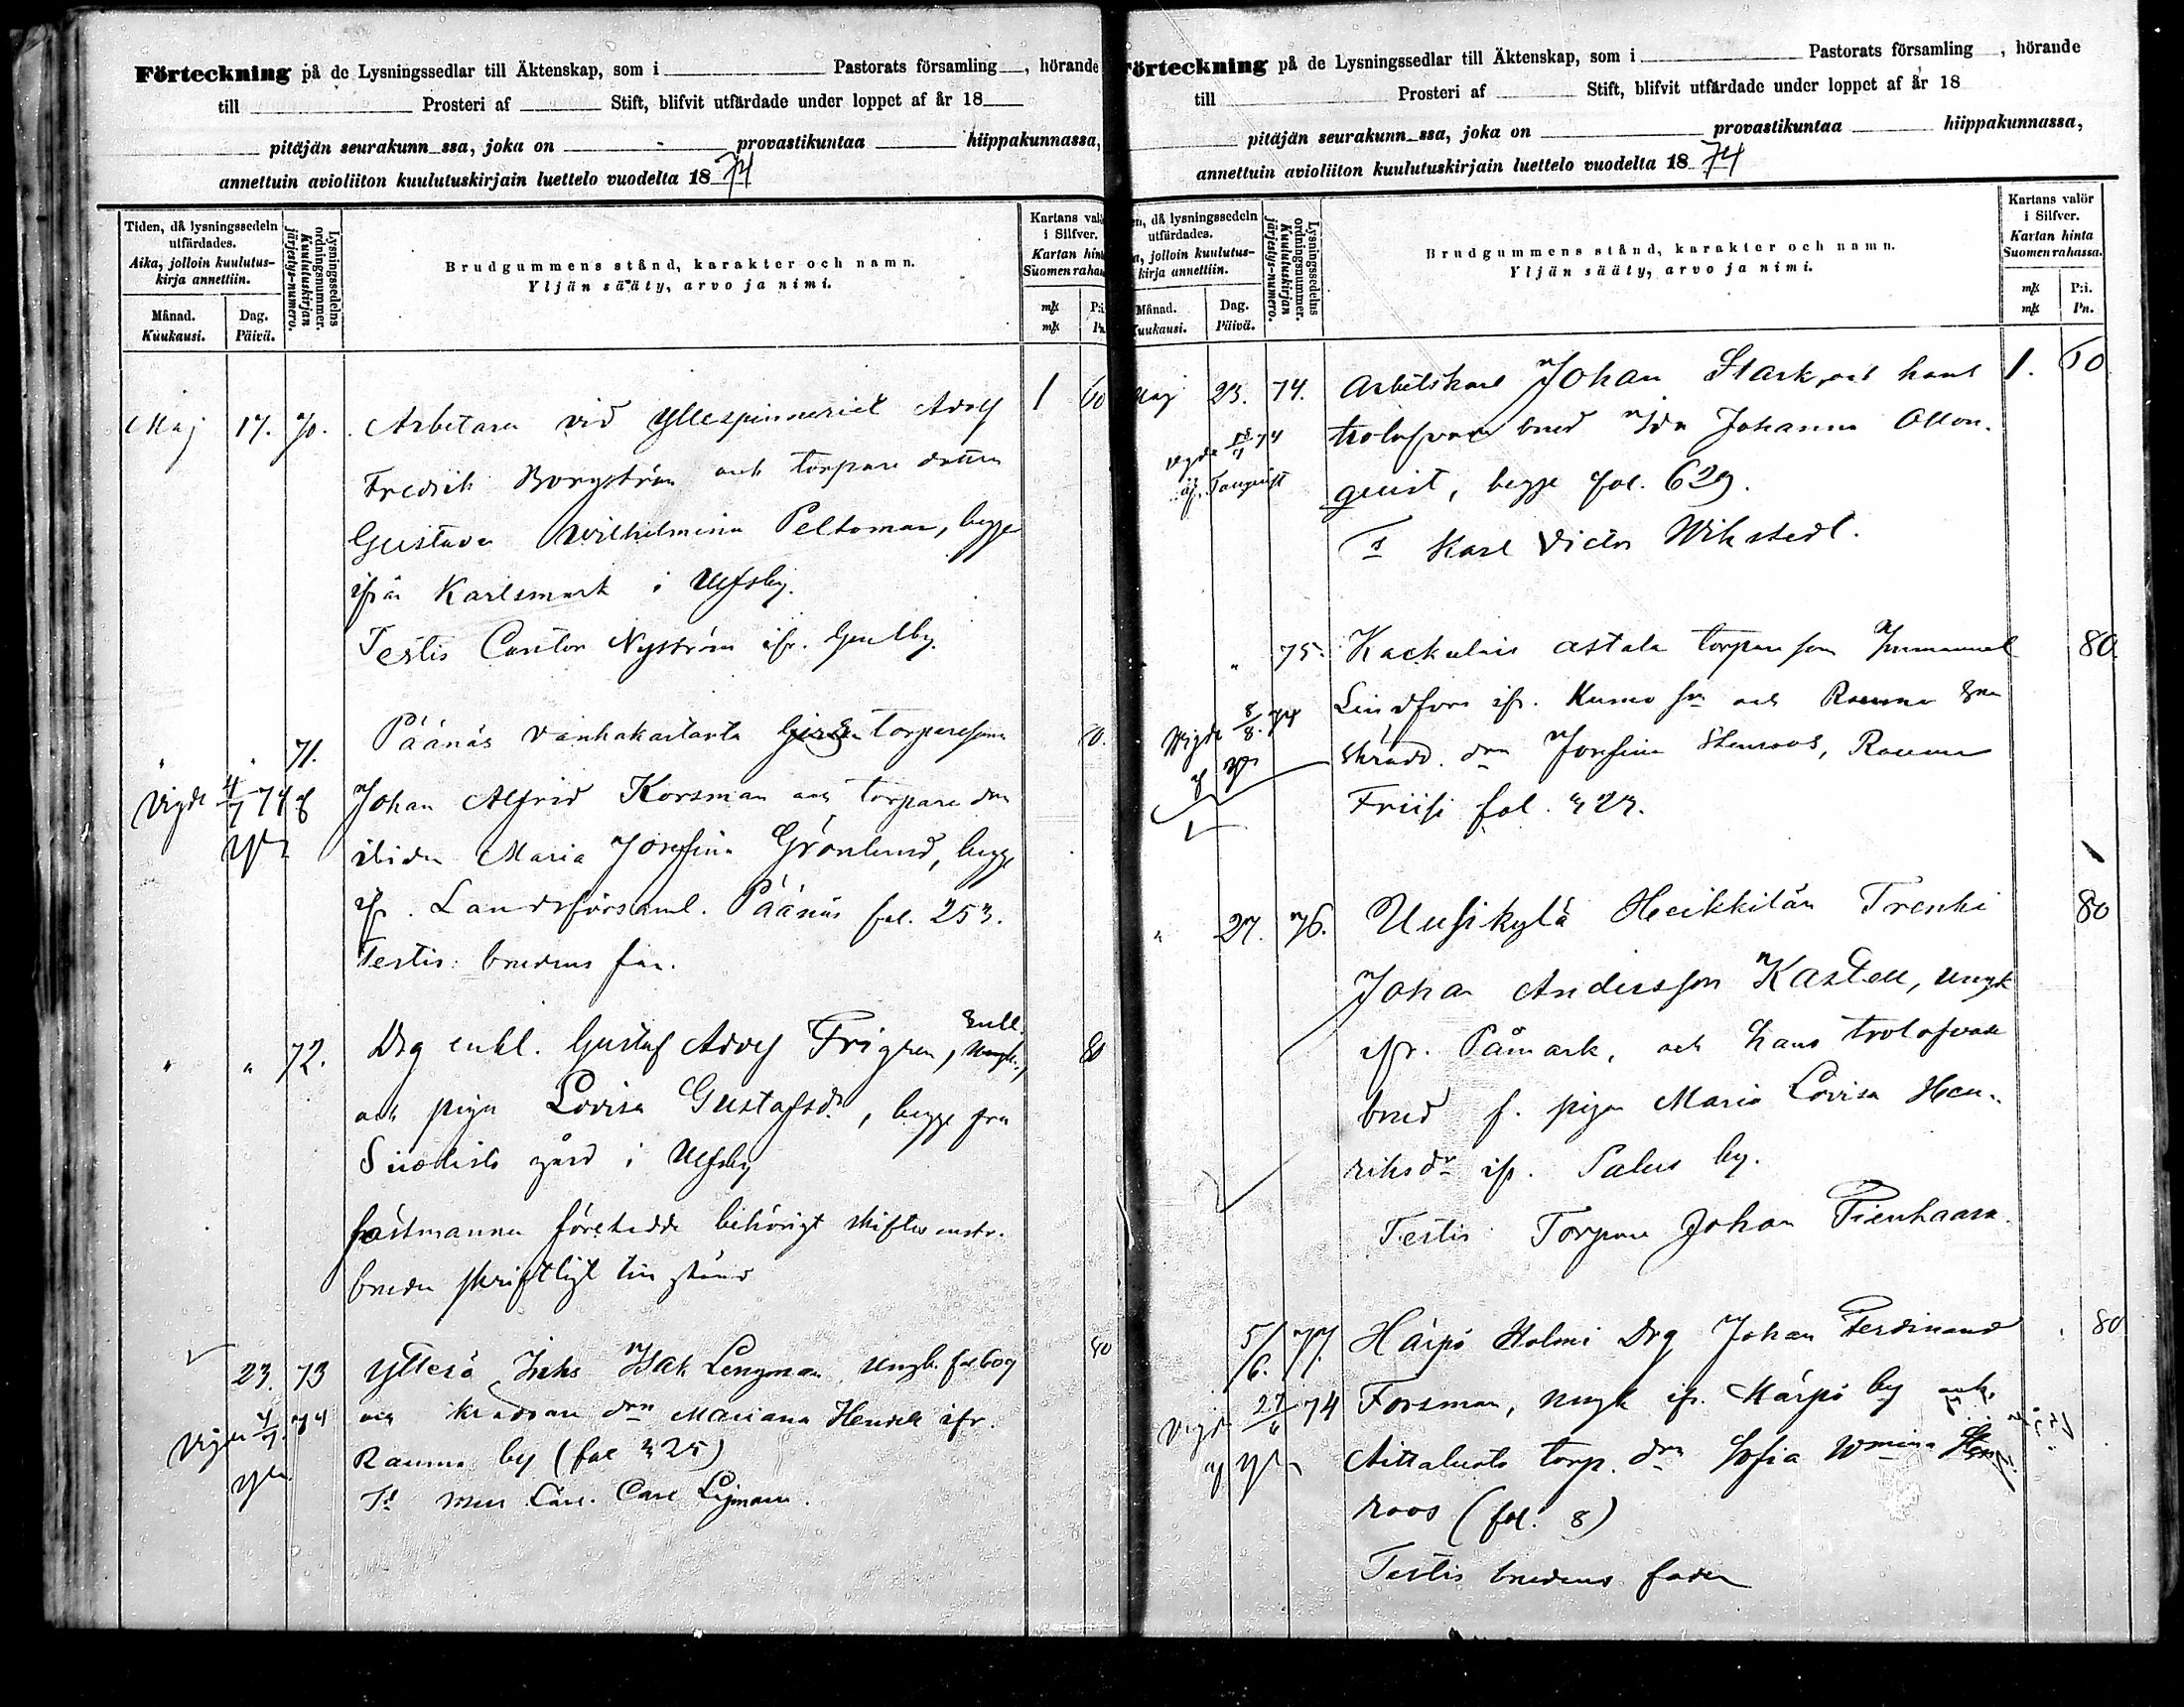 Förteckning på de Lysningssedlar till Äktenskap, som i Pastorats församling, hörande
till Prosteri af Stift, blifvit utfärdade under loppet af år 18
pitäjän seurakunn ssa, joka on provastikuntaa hiippakunnassa,
annettuin avioliiton kuulutuskirjain luettelo vuodelta 1874
Tiden, då lysningssedeln utfärdades.
Aika, jolloin kuulutus-
kirja annettiin.
Månad.
Kuukausi.
Dag.
Päivä.
Lysningssedelns ordningsnummer.
Kuulutuskirjan järjestys-numero.
Brudgummens stånd, karakter och namn.
Yljän sääty, arvo ja nimi.
Kartans valör
i Silfver.
Kartan hinta
Suomen rahassa
mk P:i
mk Pn.
Maj 17. 70. Arbetaren vid Yllespinneriet Adolf 1 60
Fredrik Borgström och torpare dottren
Gustava Wilhelmina Peltoman, begge
ifrån Karlsmark i Ulfsby.
Testis Cantor Nyström ifr.
" " 71. Päänäs Vanhakartano torparesonen
Vigde 4/7 74 Johan Alfrid Korsman och torpare dn
Maria Josefina Grönlund, begge
ifr. Landsförsaml. Päänäs fol. 253.
Testis: brudens far.
" " 72. Drg enkl. Gustaf Adolf Frigren, 80
och pigan Lovisa Gustafsdr, begge från
gård i Ulfsby
fästmannen företedde behörigt skiftes instr.
bruden skriftligt
23. 73 Ytterö Inhs Isak Lengman Ungk. fol 609 80
Vigde 4/7. 74 och dn Mariana ifr.
Raumo by (fol 425)
Ts Carl
Förteckning på de Lysningssedlar till Äktenskap, som i Pastorats församling, hörande
till Prosteri af Stift, blifvit utfärdade under loppet af år 18
pitäjän seurakunn ssa, joka on provastikuntaa hiippakunnassa,
annettuin avioliiton kuulutuskirjain luettelo vuodelta 1874
n, då lysningssedeln
utfärdades.
a, jolloin kuulutus-
kirja annettiin.
Månad.
Kuukausi.
Dag.
Päivä.
Lysningssedelns ordningsnummer.
Kuulutuskirjan järjestys-numero.
Brudgummens stånd, karakter och namn.
Yljän sääty, arvo ja nimi.
Kartans valör
i Silfver.
Kartan hinta
Suomen rahassa.
mk P:i.
mk Pn.
Maj 23. 74. Arbetskarl Johan Stark och hans 1. 60
trolofvade brud Ida Johanna Allon-
quist, begge fol. 629.
Ts Karl Victor Wikstedt.
" 75. Astala torpareson Immanuel 80
Vigde 8/8. 74 Lindfors ifr. Kumo sn och Raumo
skrädd. dn Josefina Stenroos, Raumo
Friisi fol. 423.
" 27. 76. Uusikylä Heikkilän Trenki 80
Johan Andersson Kastell, ungk
ifr. Påmark, och hans trolofvade
brud f. pigan Maria Lovisa Hen-
riksdr ifr. Salus by.
Testis Torpare Johan Pienhaara.
5/6. 77. Härpö Holmi Drg Johan Ferdinand 80
Vigde 27/6 74 Forsman, ungk ifr. Härpö by och
Aittaluoto torp. dn Sofia Wmina Sten-
roos (fol. 8)
Testis brudens fader